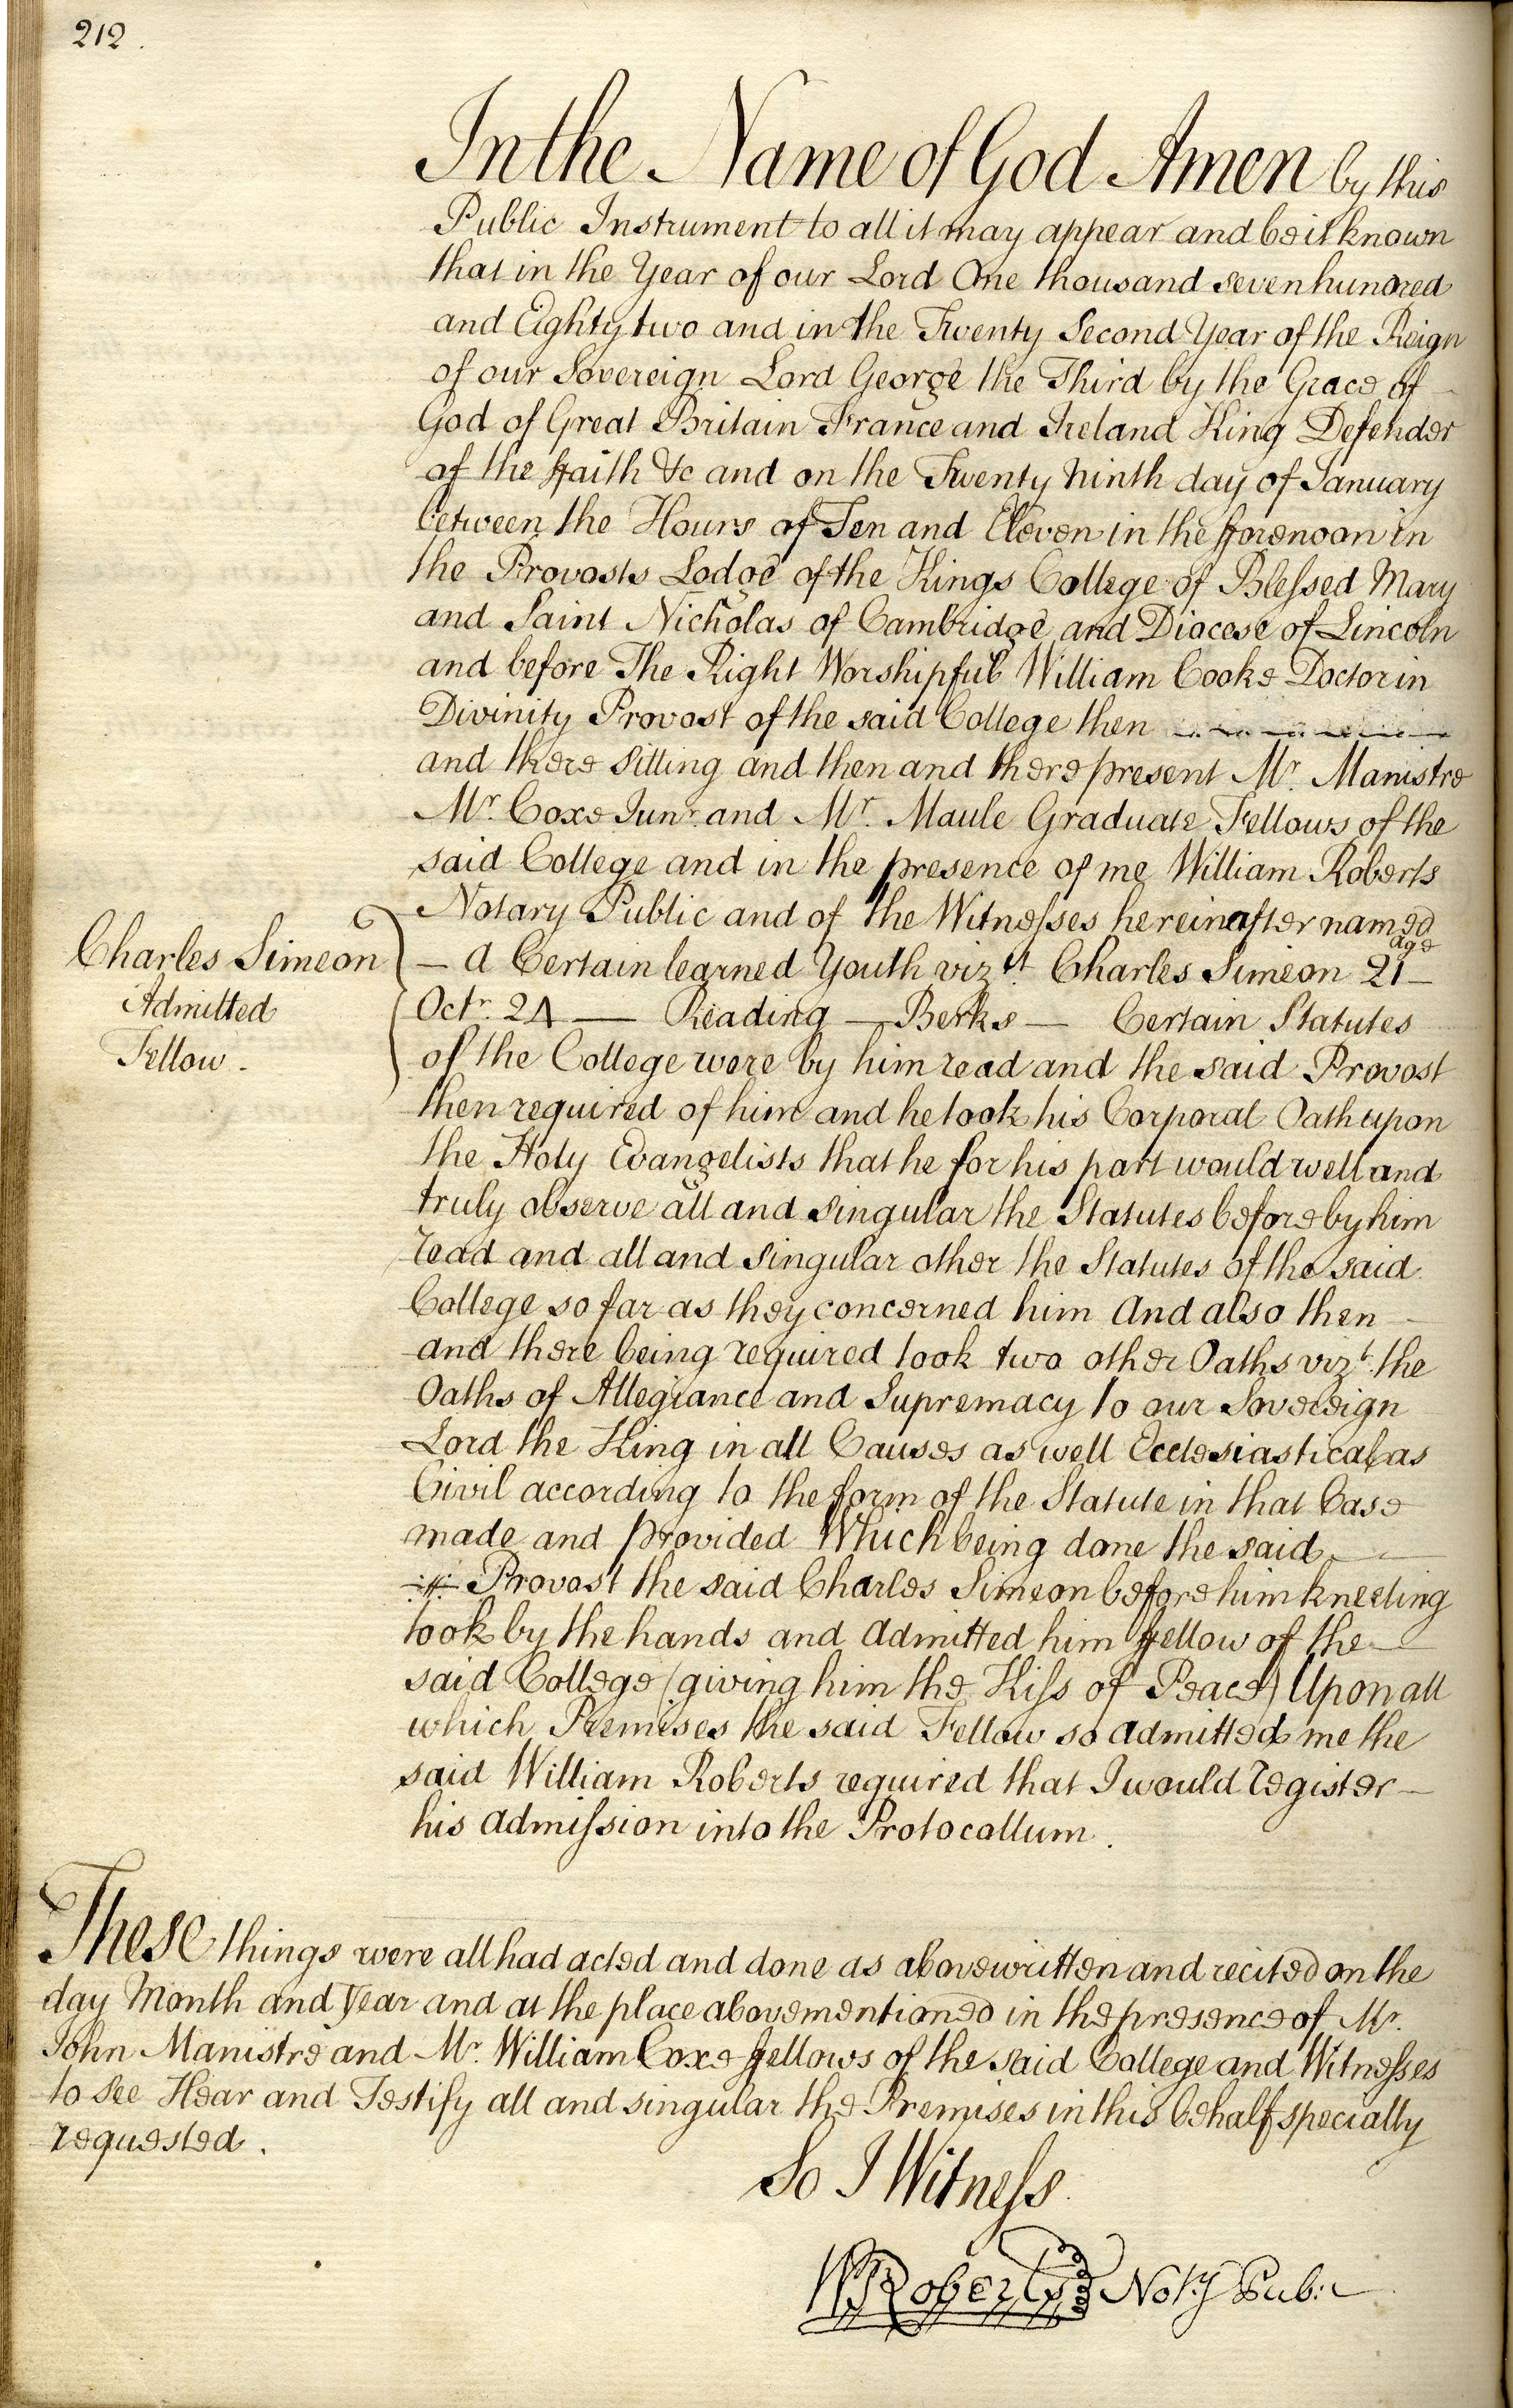 212.
In the Name of God Amen by this
Public Instrument to all it may appear and be it known
that in the Year of our Lord One thousand seven hundred
and Eighty two and in the Twenty Second Year of the Reign
of our Sovereign Lord George the Third by the Grace of
God of Great Britain France and Ireland King Defender
of the ffaith &c and on the Twenty Ninth day of January
between the Hours of Ten and Eleven in the fforenoon in
the Provosts Lodge of the Kings College of Blessed Mary
and Saint Nicholas of Cambridge and Diocese of Lincoln
and before The Right Worshipful William Cooke Doctor in
Divinity Provost of the said College then
and there Sitting and then and there present Mr. Manistre
Mr. Coxe Junr. and Mr. Maule Graduate Fellows of the
said College and in the presence of me William Roberts
Notary Public and of the Witnesses hereinafter named
Charles Simeon
Admitted
Fellow.
— a Certain learned Youth vizt. Charles Simeon age 21 —
Octr. 24 — Reading — Berks — Certain Statutes
of the College were by him read and the said Provost
then required of him and he took his Corporal Oath upon
the Holy Evangelists that he for his part would well and
truly observe all and singular the Statutes before by him
read and all and singular other the Statutes of the said
College so far as they concerned him And also then —
and there being required took two other Oaths vizt. the
Oaths of Allegiance and Supremacy to our Sovereign
Lord the King in all Causes as well Ecclesiastical as
Civil according to the form of the Statute in that Case
made and provided Which being done the said —
Provost the said Charles Simeon before him kneeling
took by the hands and Admitted him ffellow of the —
said College (giving him the Kiss of Peace) Upon all
which Premises the said Fellow so admitted me the
said William Roberts required that I would register —
his admission into the Protocollum.
These things were all had acted and done as abovewritten and recited on the
day Month and Year and at the place abovementioned in the presence of Mr.
John Manistre and Mr. William Coxe ffellows of the said College and Witnesses
to See Hear and Testify all and singular the Premises in this behalf specially
requested.
So I Witness.
W Roberts Noty. Pub: